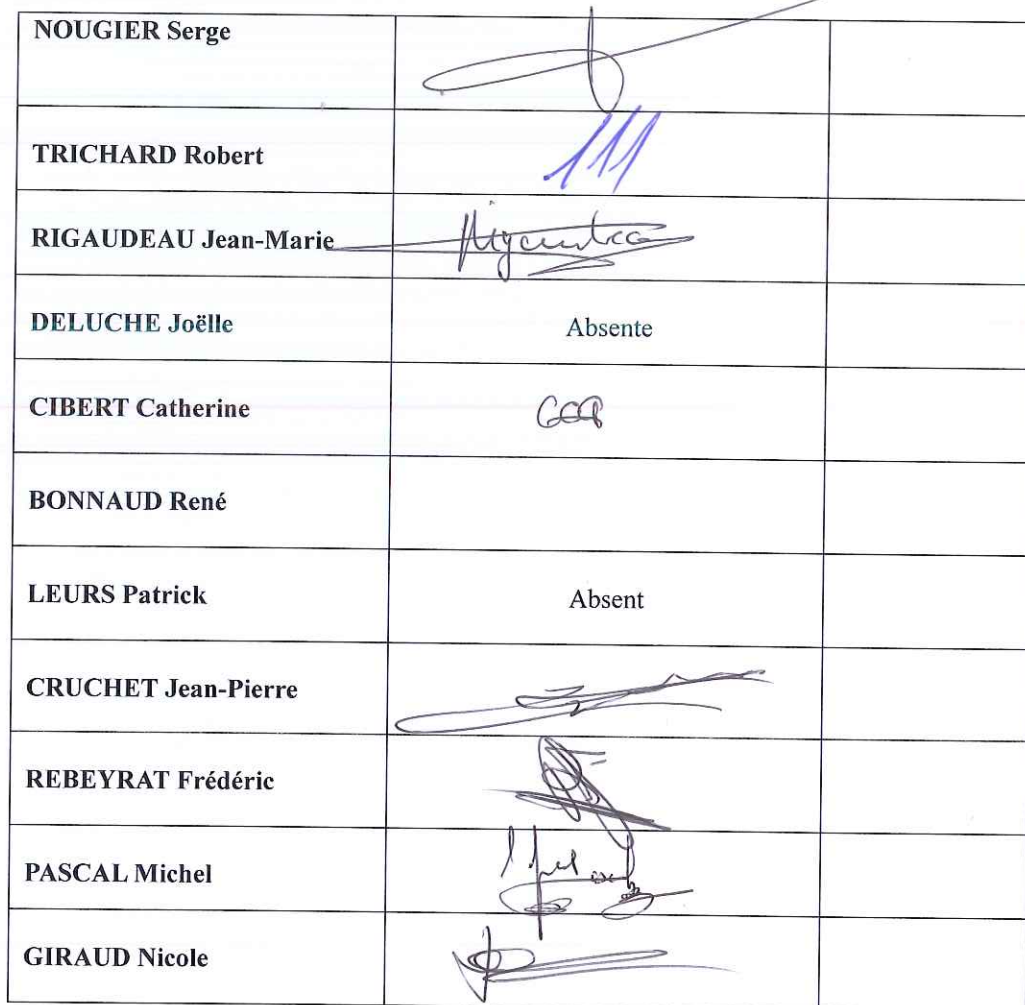 NOUGIER Serge
TRICHARD Robert
RIGAUDEAU Jean-Marie
DELUCHE Joëlle Absente
CIBERT Catherine
BONNAUD René
LEURS Patrick Absent
CRUCHET Jean-Pierre
REBEYRAT Frédéric
PASCAL Michel
GIRAUD Nicole